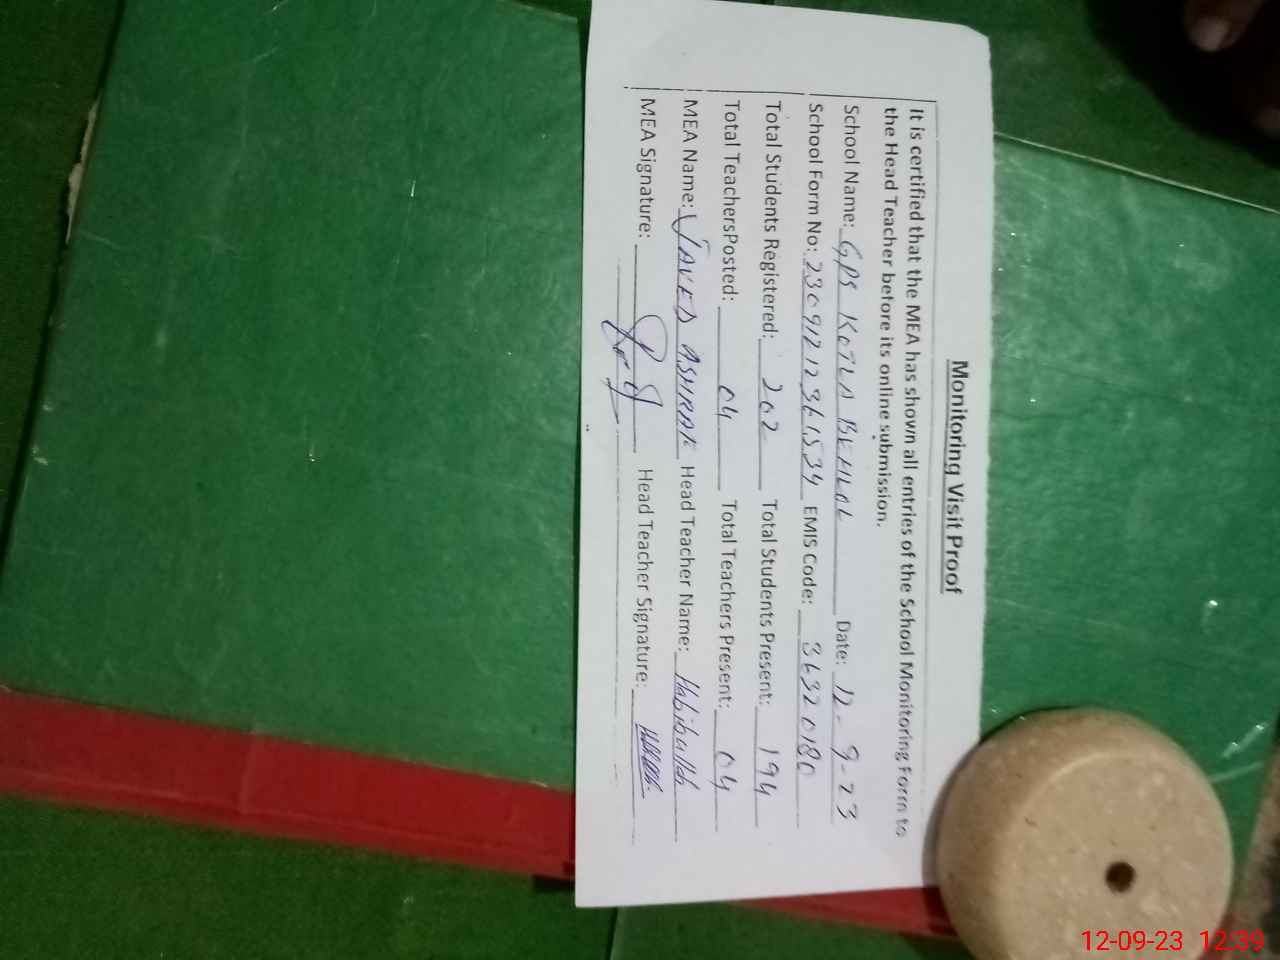 Monitoring Visit Proof
It is certified that the MEA has shown all entries of the School Monitoring Form to
the Head Teacher before its online submission.
School Name: GPS KOTLA BEHLOL Date: 12-9-23
School Form No: 23091212361534 EMIS Code: 36320180
Total Students Registered: 202 Total Students Present: 194
Total TeachersPosted: 04 Total Teachers Present: 04
MEA Name: JAVED ASHRAF Head Teacher Name: Habibullah
MEA Signature: Head Teacher Signature:
12-09-23 12:39